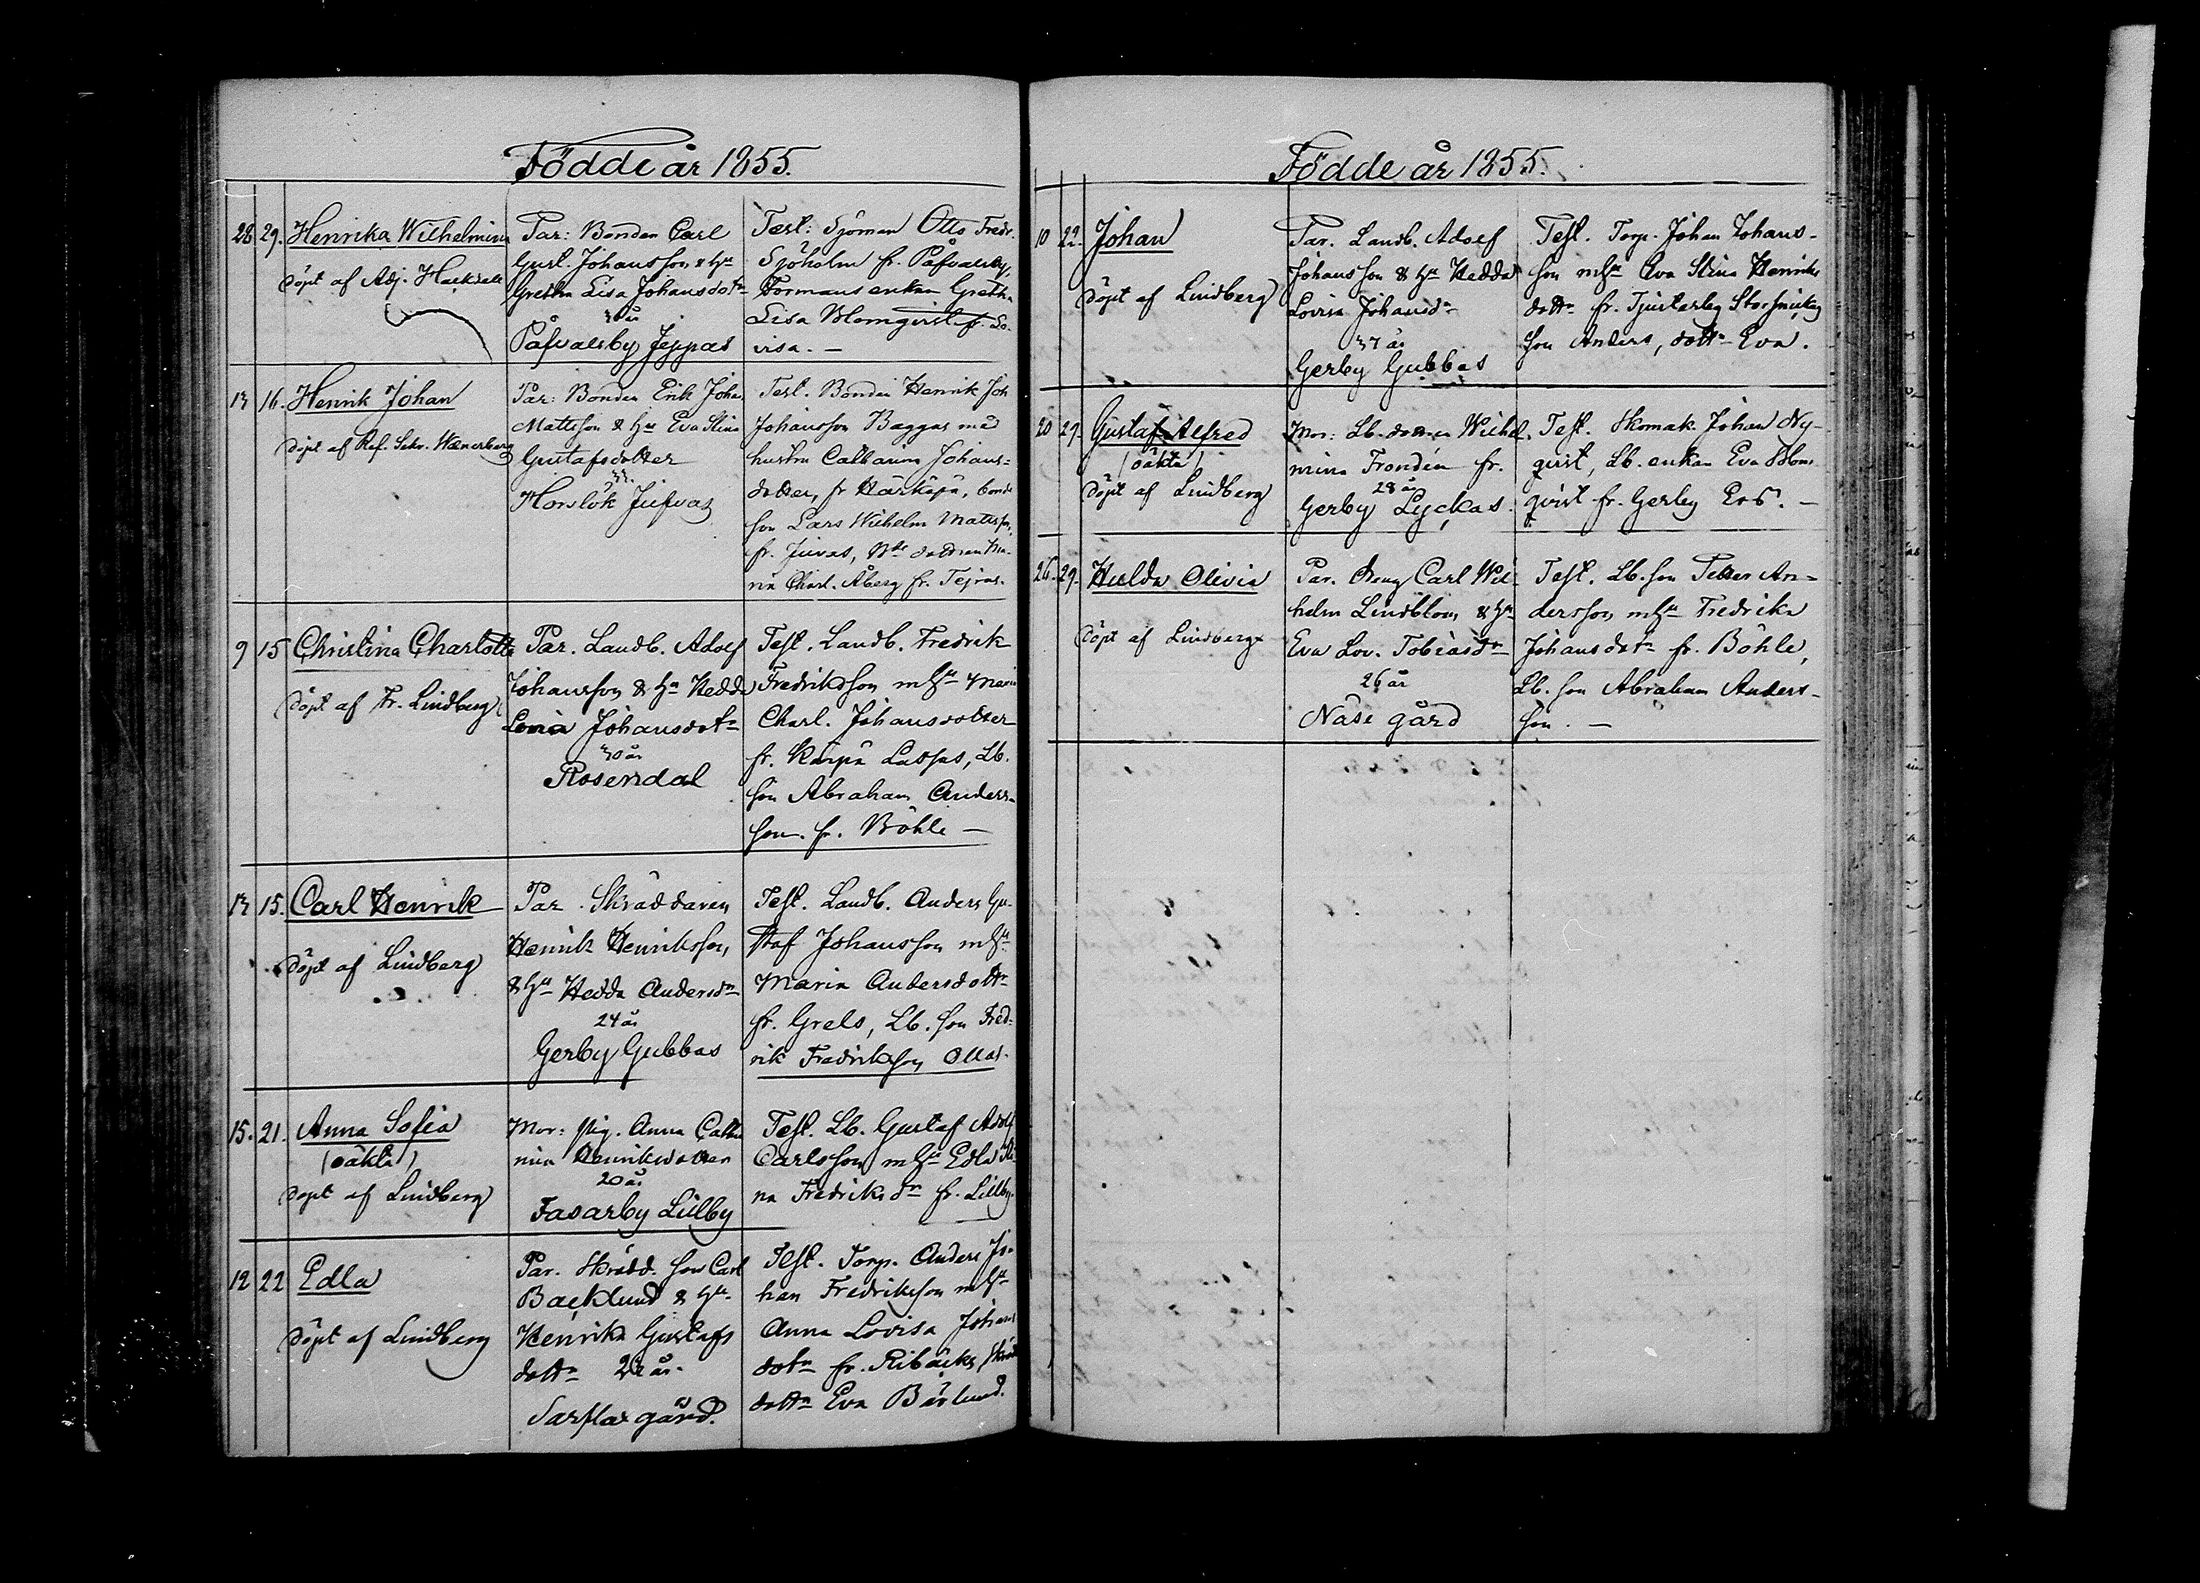 Födde år 1855.
28 29. Henrika Wilhelmina
döpt af Adj. Hacksell
Par: Bonden Carl
Gust. Johansson & Hu
Gretha Lisa Johansdotr
30 år
Påfvalsby Jeppas
Test: Sjöman Otto Fredr.
Sjöholm fr. Påfvalsby,
Formans enkan Greth.
Lisa Blomqvist fr. Lo-
visa. —
13 16. Henrik Johan
döpt af Ref. Sekr. Wænerberg
Par: Bonden Erik Joha
Mattsson & Hu Eva Stina
Gustafsdotter
33.
Horslök Jufvas
Test. Bonden Henrik Joh
Johansson Baggas med
hustru Catharina Johans=
dotter, fr Härkäpä, bonde
son Lars Wilhelm Mattsson,
fr. Juvas, Bde dottren Ma-
ria Charl. Åberg fr. Tejras.
9 15 Christina Charlotta
döpt af Fr. Lindberg
Par. Landb. Adolf
Johansson & Hu Hedda
Lovisa Johansdotr
30 år
Rosendal
Test. Landb. Fredrik
Fredriksson mHu Maria
Charl. Johansdotter
fr. Kärpä Lassas, Lb.
son Abraham Anders-
son fr. Böhle —
13 15. Carl Henrik
döpt af Lindberg
Par. Skräddaren
Henrik Henriksson,
& Hu Hedda Andersdr
24 år
Gerby Gubbas
Test. Landb. Anders Gu-
staf Johansson mHu
Maria Andersdottr
fr. Grels, Lb. son Fred-
rik Fredriksson Ollas.
15. 21. Anna Sofia
(oäkta)
döpt af Lindberg
Mor: pig. Anna Catha
rina Henriksdotter
20 år
Fasarby Lillby
Test. Lb. Gustaf Adolf
Carlsson mHu Edla Sti-
na Fredriksdr fr. Lillby.
12 22 Edla
döpt af Lindberg
Par. Skrädd. son Carl
Backlund & Hu
Henrika Gustafs
dottr år.
Sarflax gård.
Test. Torp. Anders Jo-
han Fredriksson mHu
Anna Lovisa Johans
dotr fr. Ribäcks,
dottr Eva Bärlund.
Födde år 1855.
10 22. Johan
döpt af Lindberg
Par. Landb. Adolf
Johansson & Hu Hedda
Lovisa Johansdr
37 år
Gerby Gubbas
Test. Torp. Johan Johans-
son mHu Eva Stina Henriks
dottr fr. Tjusterby
son Anders, dottr Eva.
20 29. Gustaf Alfred
(oäkta)
döpt af Lindberg
Mor: Lb. dottren Wilhel-
mina Frondén fr.
28 år
Gerby Lyckas.
Test. Skomak. Johan Ny-
qvist, Lb. enkan Eva Blom
qvist fr. Gerby Ers. —
26. 29. Hulda Olivia
döpt af Lindberg
Par. Dräng Carl Wil-
helm Lindblom & Hu
Eva Lov. Tobiasdr
26 år
Näse gård
Test. Lb. son Petter An=
dersson mHu Fredrika
Johansdotr fr. Böhle,
Lb. son Abraham Anders-
son. —